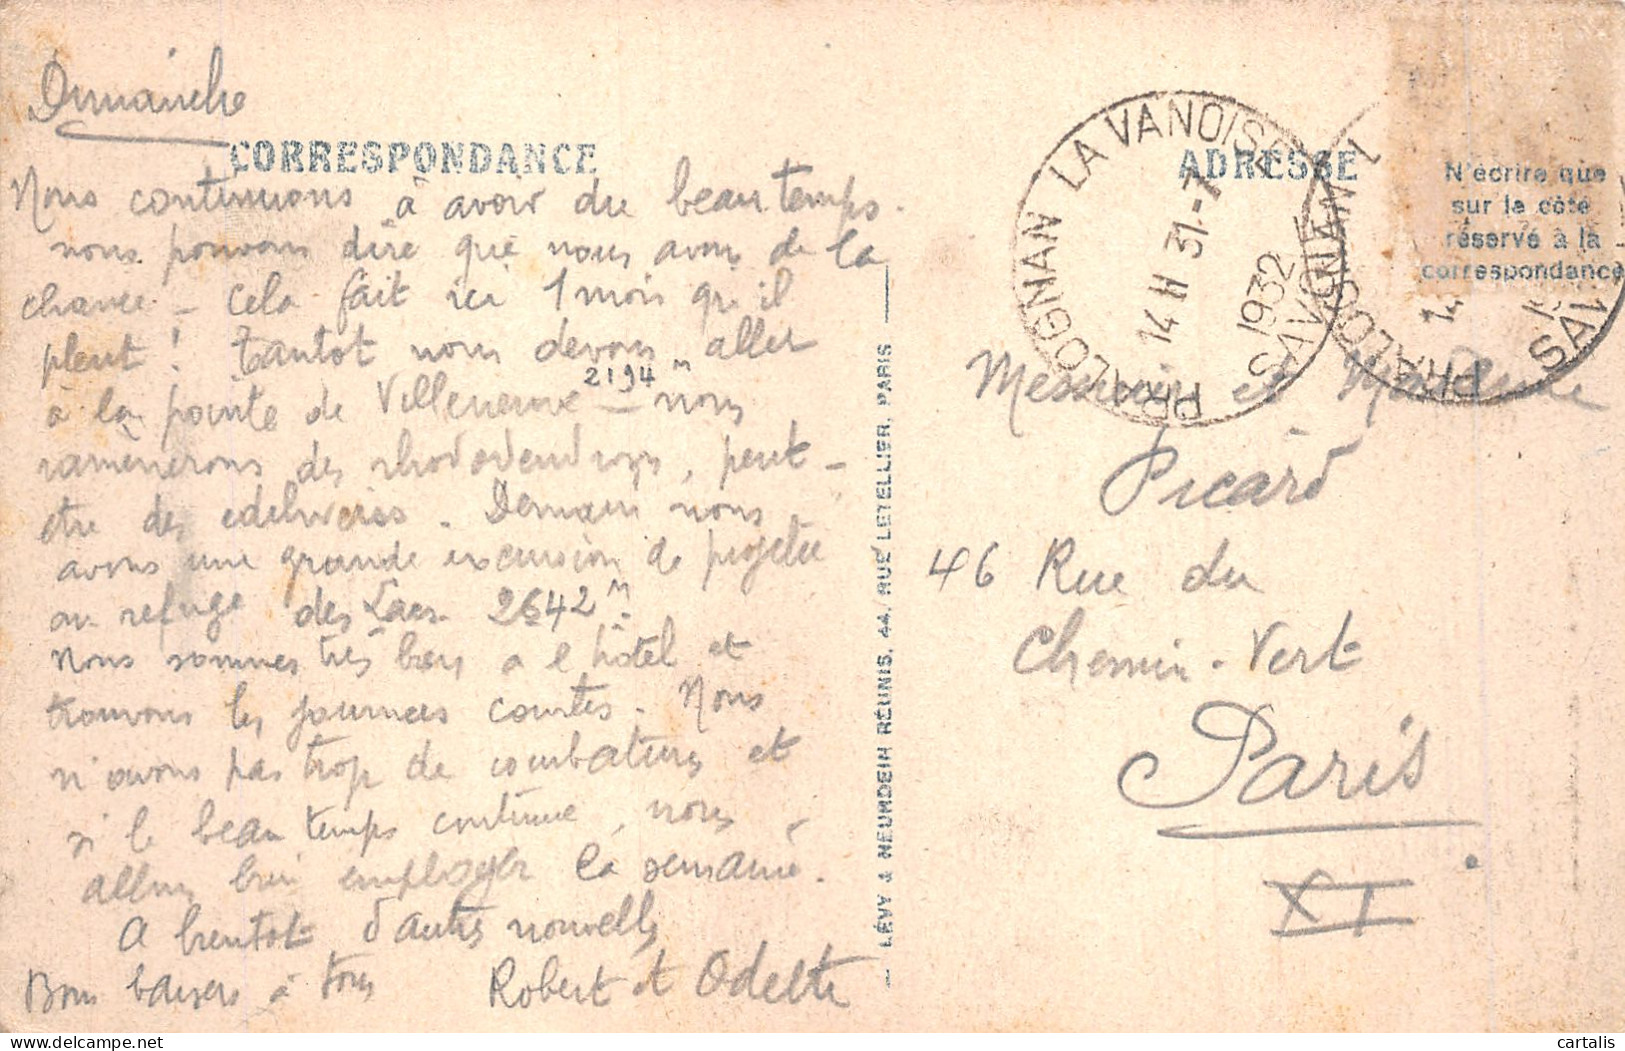 Dimanche
CORRESPONDANCE
Nous continuons à avoir du beau temps.
nous pouvons dire que nous avons de la
chance - Cela fait ici 1 mois qu'il
pleut ! Tantot nous devons aller
à la pointe de Villeneuve - 2194 m nous
ramènerons des rhododendrons, peut-
etre des edelweiss. Demain nous
avons une grande excursion de projetée
au refuge des Lacs 2642 m.
Nous sommes très bien a l'hôtel et
trouvons les journées courtes. Nous
n'avons pas trop de courbatures et
si le beau temps continue, nous
allons bien employer la semaine.
A bientot d'autres nouvelles
Bons baisers à tous Robert et Odette
LÉVY & NEURDEIN RÉUNIS, 44, RUE LETELLIER, PARIS
ADRESSE
N'écrire que
sur le côté
réservé à la
correspondance
PRALOGNAN LA VANOISE
SAVOIE
14 H 31-7
1932
PRALOGNAN L
SAV
14
Messieurs et Madame
Picard
46 Rue du
Chemin-Vert
Paris
XI
cartalis
delcampe.net